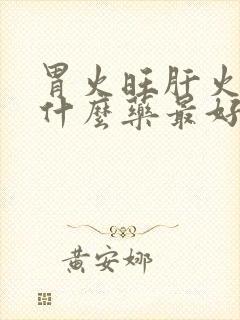 胃火旺肝火
什麼藥最好
黄安娜